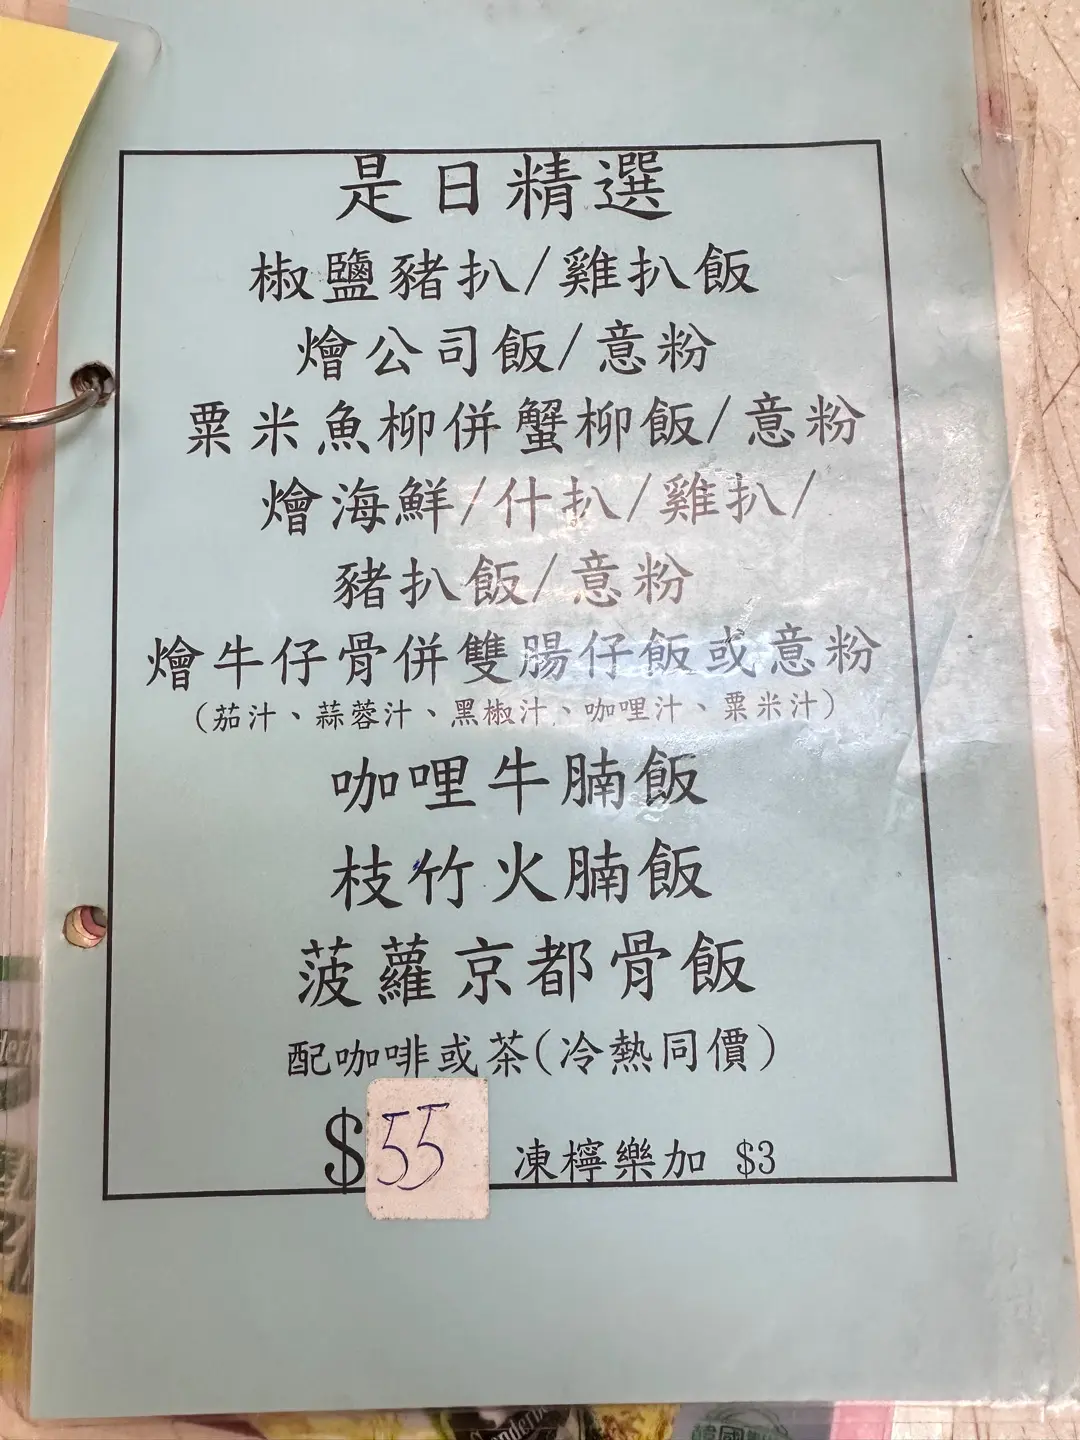 是日精選
椒鹽豬扒/雞扒飯
燴公司飯/意粉
粟米魚柳併蟹柳飯/意粉
燴海鮮/什扒/雞扒/
豬扒飯/意粉
燴牛仔骨併雙腸仔飯或意粉
(茄汁、蒜蓉汁、黑椒汁、咖哩汁、粟米汁)
咖哩牛腩飯
枝竹火腩飯
菠蘿京都骨飯
配咖啡或茶(冷熱同價)
$55 凍檸樂加 $3